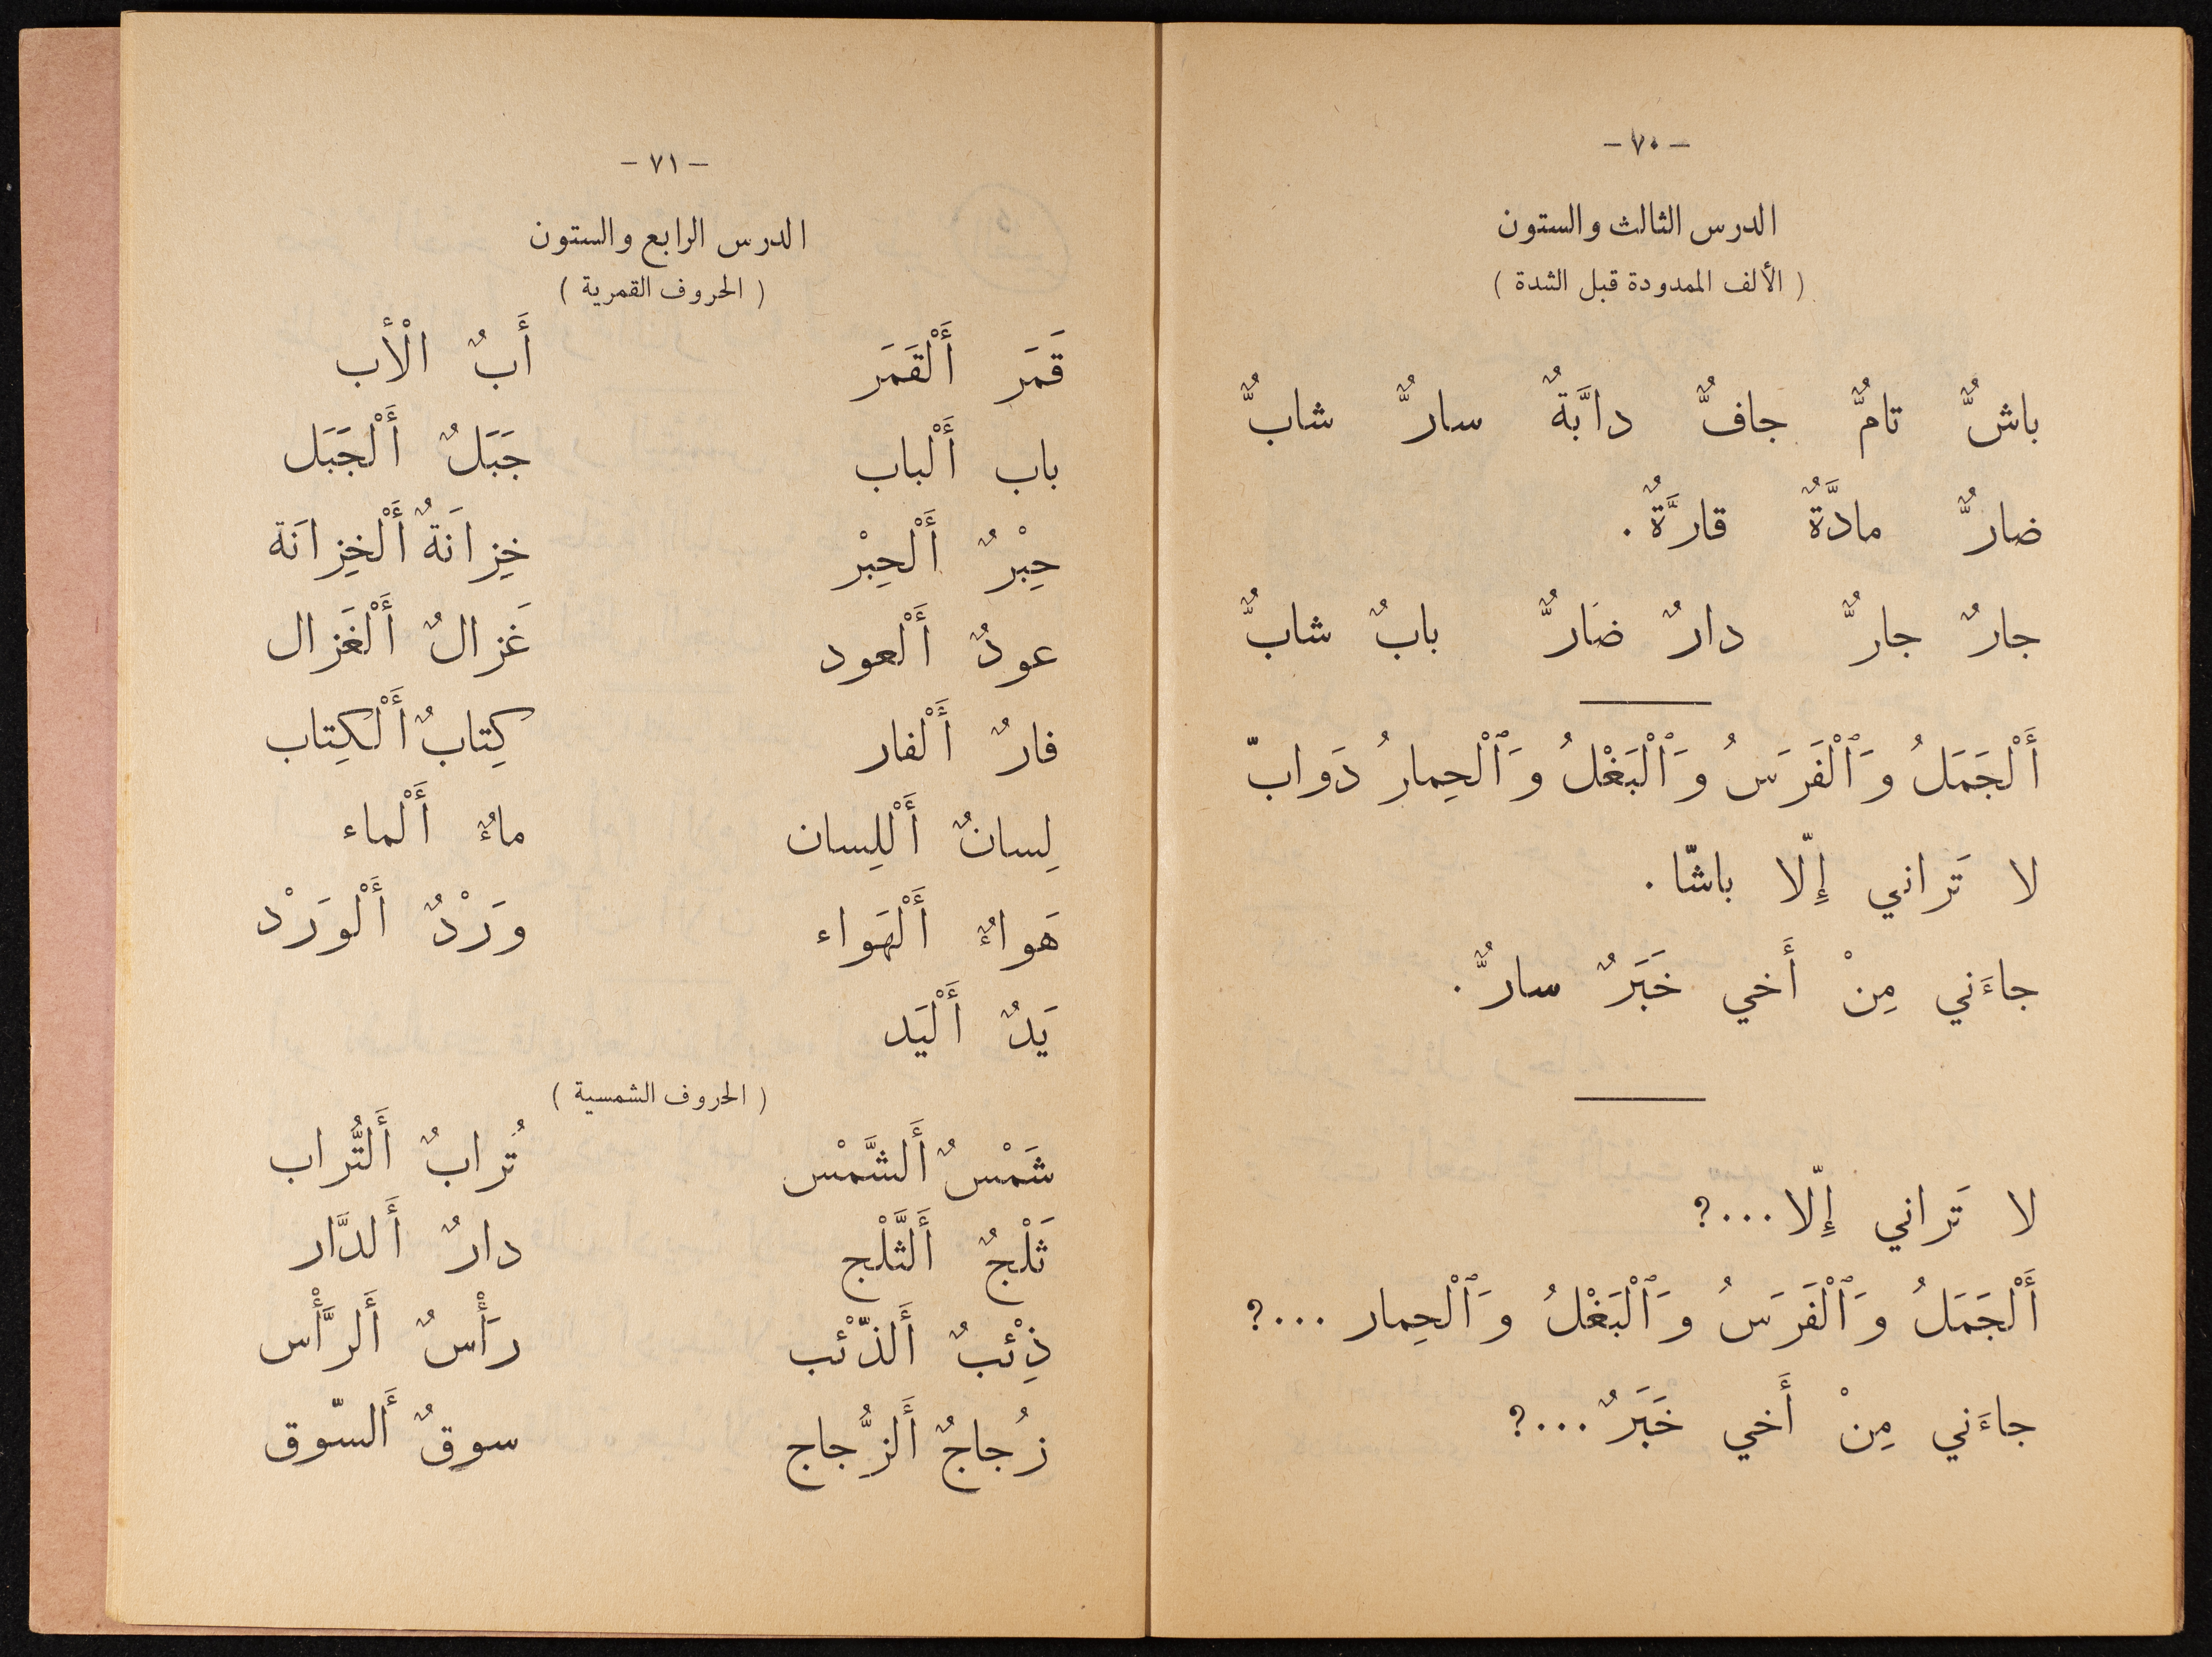 - ٧٠ -
الدرس الثالث والستون
( الألف الممدودة قبل الشدة )
باشٌّ تامٌّ جافٌّ دابَّةٌ سارٌّ شابٌّ
ضارٌّ مادَّةٌ قارَّةٌ .
جارٌ جارٌّ دارٌ ضَارٌّ بابٌ شابٌّ
أَلْجَمَلُ وَٱلْفَرَسُ وَٱلْبَغْلُ وَٱلْحِمارُ دَوابّ
لا تَراني إِلّا باشّا .
جاءَني مِنْ أَخي خَبَرٌ سارٌّ .
لا تَراني إِلّا ...؟
أَلْجَمَلُ وَٱلْفَرَسُ وَٱلْبَغْلُ وَٱلْحِمار ...؟
جاءَني مِنْ أَخي خَبَرٌ ...؟
- ٧١ -
الدرس الرابع والستون
( الحروف القمرية )
قَمَر أَلْقَمَر أَبٌ الْأب
باب أَلْباب جَبَلٌ أَلْجَبَل
حِبْرٌ أَلْحِبْر خِزانَةٌ أَلْخِزانَة
عودٌ أَلْعود غَزالٌ أَلْغَزال
فارٌ أَلْفار كِتابٌ أَلْكِتاب
لِسانٌ أَلْلِسان ماءٌ أَلْماء
هَواءٌ أَلْهَواء وَرْدٌ أَلْوَرْد
يَدٌ أَلْيَد
( الحروف الشمسية )
شَمْسٌ أَلشَّمْس تُرابٌ أَلتُّراب
ثَلْجٌ أَلثَّلْج دارٌ أَلدَّار
ذِئْبٌ أَلذّئْب رَأْسٌ أَلرَّأْس
زُجاجٌ أَلزُّجاج سوقٌ أَلسّوق